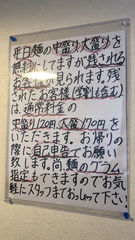 平日麺の中盛り大盛りを
無料にしてますが残される
お客様が見られます。残
されたお客様(学割も含む)
は通常料金の
中盛り120円、大盛170円を
いただきます。お帰りの
際に自己申告でお願い
致します。尚、麺のグラム
指定もできますのでお気
軽にスタッフまでおっしゃって下さい